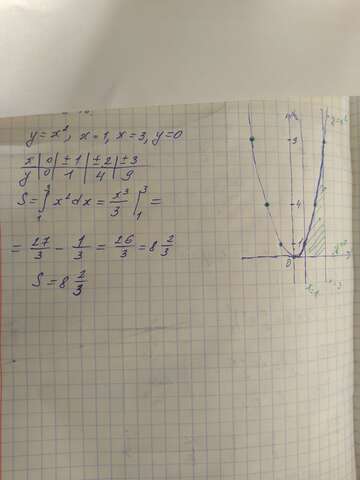 y = x², x = 1, x = 3, y = 0
x | 0 | ±1 | ±2 | ±3
y | 0 | 1 | 4 | 9
S = ∫₁³ x² dx = x³/3 |₁³ =
= 27/3 - 1/3 = 26/3 = 8 2/3
S = 8 2/3
4
1
0